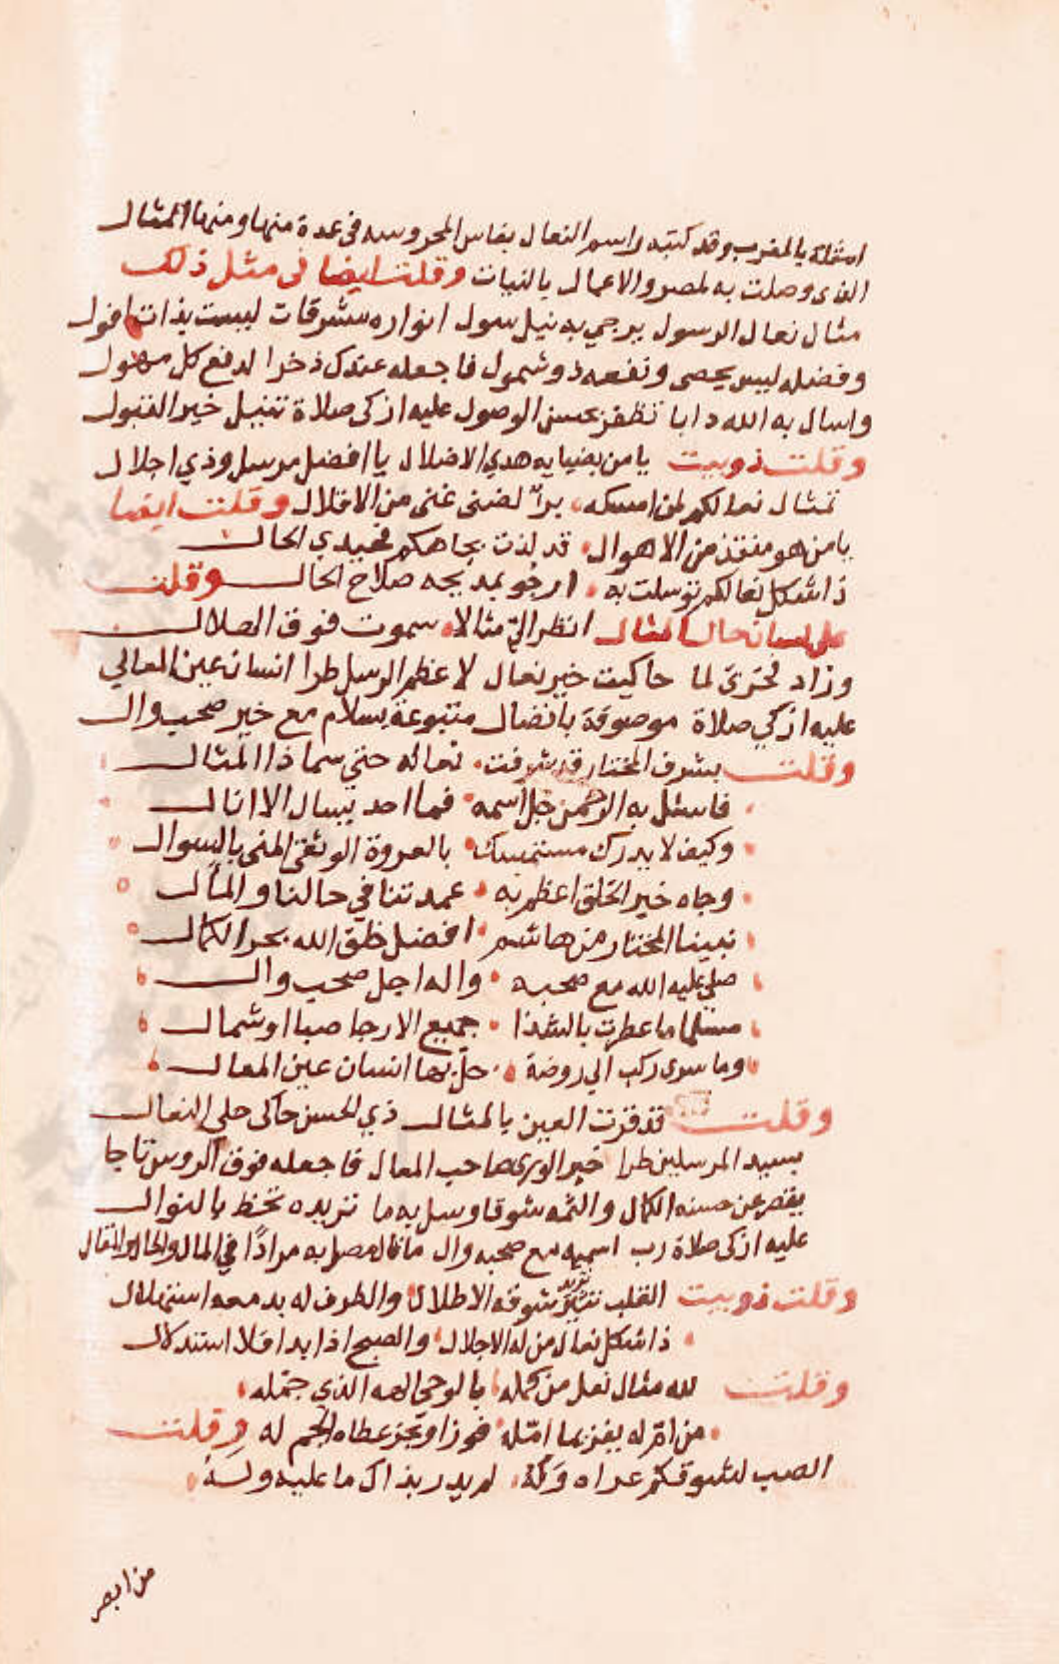 امثلة بالمغرب وقد كتبه راسم النعال بفاس المحروسه في عدة منها ومنها المثال
الذى وصلت به لمصر والاعمال بالنيات وقلت ايضا فى مثل ذلك
مثال نعال الرسول يرجي به نيل سول انواره مشرقات ليست بذات افول
وفضله ليس يحصى ونفعه ذو شمول فاجعله عندك ذخرا لدفع كل مهول
واسال به الله دابا تظفر بحسن الوصول عليه ازكى صلاة تنيل خير القبول
وقلت ذوبيت يا من بضيايه هدي الاضلال يا افضل مرسل وذي اجلال
تمثال نعالكم لمن امسكه برأ لضنى غنى من الاقلال وقلت ايضا
يا من هو منقذ من الاهوال قد لذت بجاهكم فجيدي الحال
ذا شكل نعالكم توسلت به ارجو بمديحه صلاح الحال وقلت
على لسان حال المثال انظر اليّ مثالا سموت فوق
وزاد لما حاكيت خير نعال لاعظم الرسل طرا انسان عين المعالي
عليه ازكي صلاة موصوفة باتصال متبوعة بسلام مع خير صحب وال
وقلت بشرف المختار قد شرفت نعاله حتي سما ذا المثال
فاسئل به الرحمن جل اسمه فما احد يسال الا انال
وكيف لا يدرك مستمسك بالعروة الوثقى المنى بالسوال
وجاه خير الخلق اعظم به عمدتنا في حالنا والمآل
نبينا المختار من هاشم افضل خلق الله بحر الكمال
صلي عليه الله مع صحبه واله اجل صحب وال
مسلما ما عطرت بالشذا جميع الارجا صبا او شمال
وما سرى ركب الي روضة حلّ بها انسان عين المعال
وقلت قد قرت العين بالمثال ذي الحسن حاكى حلى النعال
بسيد المرسلين طرا خير الورى صاحب المعال فاجعله فوق الروس تاجا
يفتر عن حسنه الكمال والثمه شوقا وسل به ما تريده تحظ بالنوال
عليه ازكى صلاة رب اسميه مع صحبه وال ما نال مصل به مرادًا في المال والحال والمقال
وقلت ذوبيت القلب تزيد شوقه الاطلال والطرف له بدمعه استهلال
ذا شكل نعال من له الاجلال والصبح اذا بدا فلا استدلال
وقلت لله مثال نعل من كمله بالوحي الهه الذي جمّله
من امّ له يفز بما امّله فوزا ويحز عطاه الجم له وقلت
الصب لشوقكم عراه وَلَهُ لم يدر بذاك ما عليه ولَهُ
من ابصر